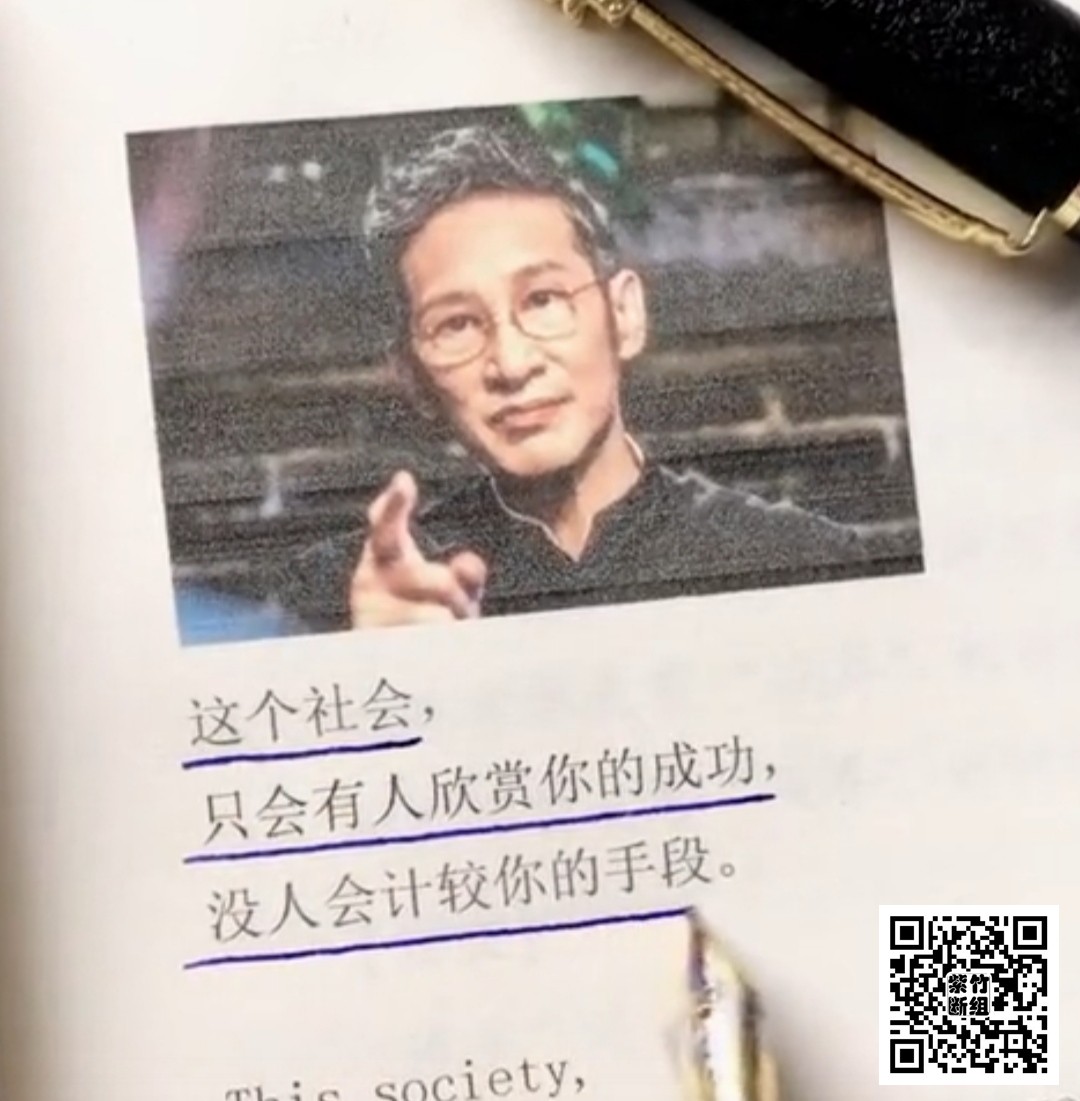 这个社会，
只会有人欣赏你的成功，
没人会计较你的手段。
This society,
紫竹
断组